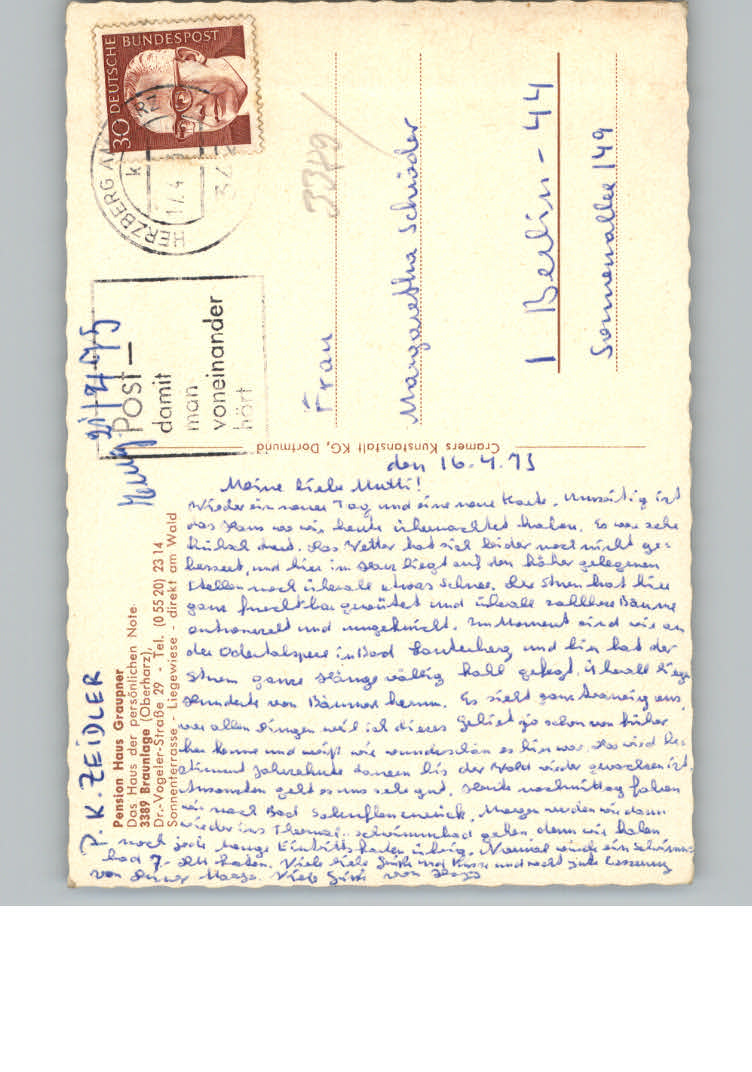 30 DEUTSCHE BUNDESPOST
HERZBERG AM HARZ
Post
damit
man
voneinander
hört
21/4 75
3389
Frau
Margaretha Schröder
1 Berlin - 44
Sonnenallee 149
Cramers Kunstanstalt KG, Dortmund
P. K. ZEIDLER
Pension Haus Graupner
Das Haus der persönlichen Note.
3389 Braunlage (Oberharz),
Dr.-Vogeler-Straße 29 - Tel. (0 55 20) 23 14
Sonnenterrasse - Liegewiese - direkt am Wald
den 16.4.73
Meine liebe Mutti!
Wieder ein neuer Tag und eine neue Karte. ist
das Haus wo wir heute übernachtet haben. Es war sehr
hübsch dort. Das Wetter hat sich leider noch nicht ge-
bessert, und hier im Harz liegt auf den höher gelegenen
Stellen noch überall etwas Schnee. Der Sturm hat hier
ganz furchtbar gewütet und überall zahllose Bäume
entwurzelt und umgeknickt. Im Moment sind wir an
der Odertalsperre in Bad Lauterberg und hier hat der
Sturm ganze Hänge völlig kahl gefegt, überall liegen
Hunderte von Bäumen herum. Es sieht ganz traurig aus,
vor allen Dingen weil ich dieses Gebiet ja schon von früher
her kenne und weiß wie wunderschön es hier war. Das wird be-
stimmt Jahrzehnte dauern bis der Wald wieder gewachsen ist.
Ansonsten geht es uns sehr gut. Heute nachmittag fahren
wir nach Bad Salzuflen zurück. Morgen werden wir dann
wieder ins Thermal-schwimmbad gehen, denn wir haben
noch jede Menge Eintrittskarten übrig.
Viele liebe Grüße und Küsse und recht gute Besserung
von Deiner Viele Grüße von